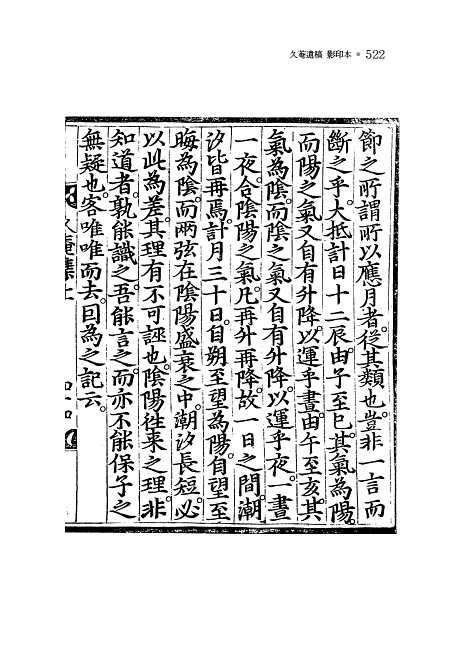 久菴遺稿 影印本 ● 522
節之所謂所以應月者。從其類也。豈非一言而
斷之乎。大抵計日十二辰。由子至巳。其氣為陽。
而陽之氣又自有升降。以運乎晝。由午至亥。其
氣為陰。而陰之氣又自有升降。以運乎夜。一晝
一夜。合陰陽之氣。凡再升再降。故一日之間。潮
汐皆再焉。計月三十日。自朔至望為陽。自望至
晦為陰。而兩弦在陰陽盛衰之中。潮汐長短。必
以此為差。其理有不可誣也。陰陽往来之理。非
知道者。孰能識之。吾能言之。而亦不能保子之
無疑也。客唯唯而去。因為之記云。